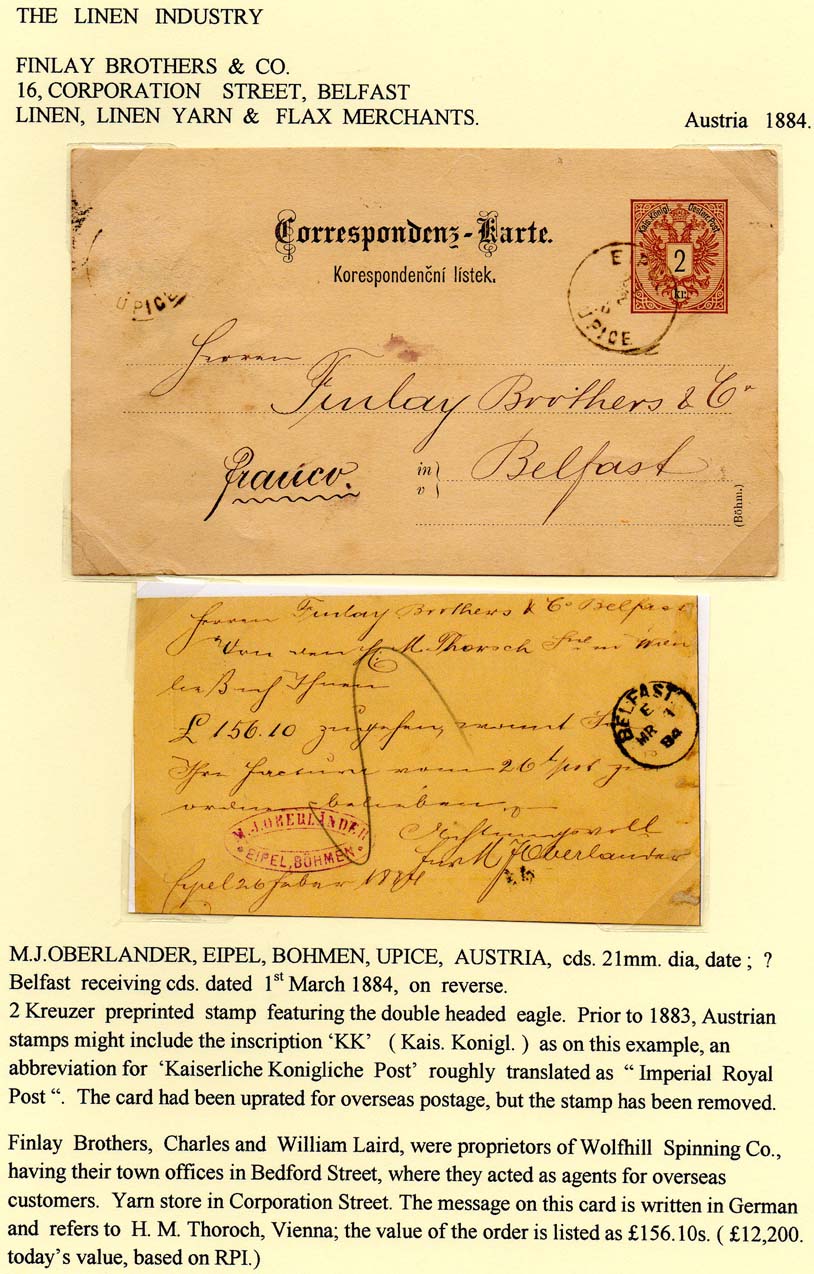 THE LINEN INDUSTRY
FINLAY BROTHERS & CO.
16, CORPORATION STREET, BELFAST
LINEN, LINEN YARN & FLAX MERCHANTS.
Austria 1884.
Correspondenz-Karte.
Korespondenční lístek.
Kais. Königl. Oesterr. Post
2
kr.
E
ÚPICE
ÚPICE
Herren
Finlay Brothers & Co
franco.
in
v
Belfast
(Böhm.)
Herren Finlay Brothers & Co Belfast
Von den H. M. Thorsch in Wien
ließ ich Ihnen
£ 156.10 zugehen, womit Sie
Ihre Factura vom 26t zu
ordnen belieben.
BELFAST
E
MR 1
84
M. J. OBERLÄNDER
EIPEL, BÖHMEN
Achtungsvoll
M J Oberlander
Eipel 26 1884
M.J.OBERLANDER, EIPEL, BOHMEN, UPICE, AUSTRIA, cds. 21mm. dia, date ; ?
Belfast receiving cds. dated 1st March 1884, on reverse.
2 Kreuzer preprinted stamp featuring the double headed eagle. Prior to 1883, Austrian
stamps might include the inscription ‘KK’ ( Kais. Konigl. ) as on this example, an
abbreviation for ‘Kaiserliche Konigliche Post’ roughly translated as “ Imperial Royal
Post “. The card had been uprated for overseas postage, but the stamp has been removed.
Finlay Brothers, Charles and William Laird, were proprietors of Wolfhill Spinning Co.,
having their town offices in Bedford Street, where they acted as agents for overseas
customers. Yarn store in Corporation Street. The message on this card is written in German
and refers to H. M. Thoroch, Vienna; the value of the order is listed as £156.10s. ( £12,200.
today’s value, based on RPI.)